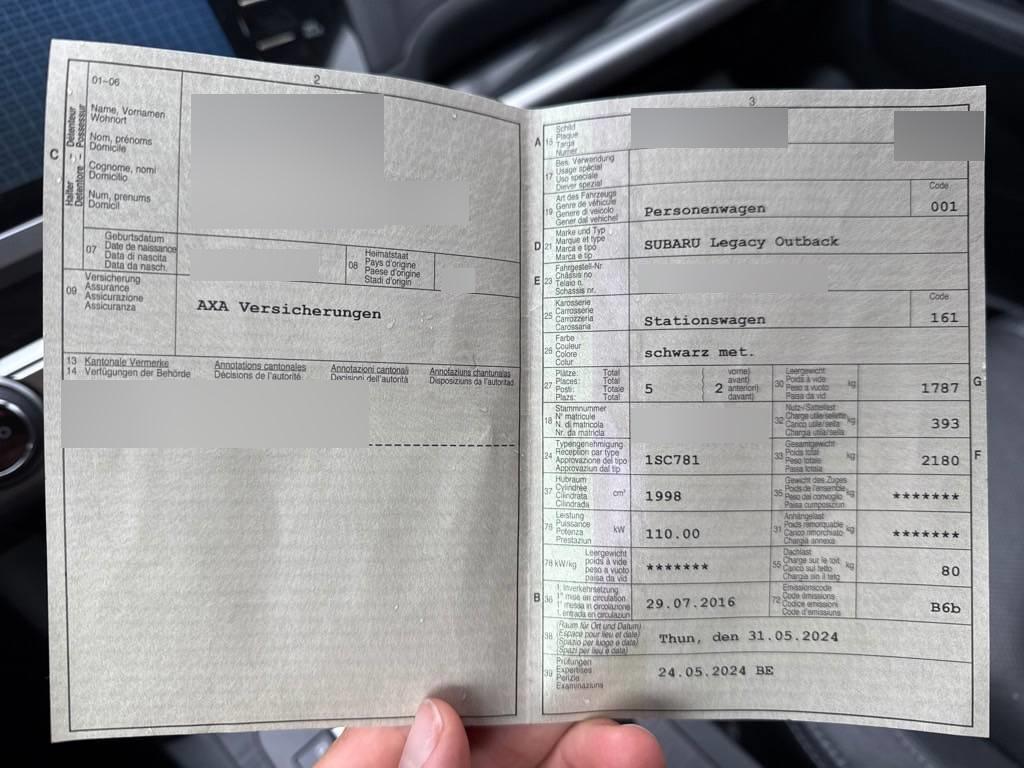 2
01–06
C
Halter Detentore
Détenteur Possessur
Name, Vornamen
Wohnort
Nom, prénoms
Domicile
Cognome, nomi
Domicilio
Num, prenums
Domicil
07
Geburtsdatum
Date de naissance
Data di nascita
Data da nasch.
08
Heimatstaat
Pays d'origine
Paese d'origine
Stadi d'origin
09
Versicherung
Assurance
Assicurazione
Assicuranza
AXA Versicherungen
13 Kantonale Vermerke Annotations cantonales Annotazioni cantonali Annotaziuns chantunalas
14 Verfügungen der Behörde Décisions de l'autorité Decisioni dell'autorità Disposiziuns da l'autoritad
3
A 15
Schild
Plaque
Targa
Numer
17
Bes. Verwendung
Usage spécial
Uso speciale
Diever spezial
19
Art des Fahrzeugs
Genre de véhicule
Genere di veicolo
Gener dal vehichel
Personenwagen
Code
001
D 21
Marke und Typ
Marque et type
Marca e tipo
Marca e tip
SUBARU Legacy Outback
E 23
Fahrgestell-Nr.
Châssis no
Telaio n.
Schassis nr.
25
Karosserie
Carrosserie
Carrozzeria
Carossaria
Stationswagen
Code
161
26
Farbe
Couleur
Colore
Colur
schwarz met.
27
Plätze: Total
Places: Total
Posti: Totale
Plazs: Total
5
2
vorne)
avant)
anteriori)
davant)
30
Leergewicht
Poids à vide
Peso a vuoto
Paisa da vid
kg
1787
G
18
Stammnummer
N° matricule
N. di matricola
Nr. da matricla
32
Nutz-/Sattellast
Charge utile/sellette
Carico utile/sella
Chargia utila/sella
kg
393
24
Typengenehmigung
Réception par type
Approvazione del tipo
Approvaziun dal tip
1SC781
33
Gesamtgewicht
Poids total
Peso totale
Paisa totala
kg
2180
F
37
Hubraum
Cylindrée
Cilindrata
Cilindrada
cm³
1998
35
Gewicht des Zuges
Poids de l'ensemble
Peso del convoglio
Paisa cumposiziun
kg
*******
76
Leistung
Puissance
Potenza
Prestaziun
kW
110.00
31
Anhängelast
Poids remorquable
Carico rimorchiato
Chargia annexa
kg
*******
78 kW/kg
Leergewicht
poids à vide
peso a vuoto
paisa da vid
*******
55
Dachlast
Charge sur le toit
Carico sul tetto
Chargia sin il tetg
kg
80
B 36
1. Inverkehrsetzung
1re mise en circulation
1a messa in circolazione
1. entrada en circulaziun
29.07.2016
72
Emissionscode
Code émissions
Codice emissioni
Code d'emissiuns
B6b
38
(Raum für Ort und Datum)
(Espace pour lieu et date)
(Spazio per luogo e data)
(Spazi per lieu e data)
Thun, den 31.05.2024
39
Prüfungen
Expertises
Perizie
Examinaziuns
24.05.2024 BE